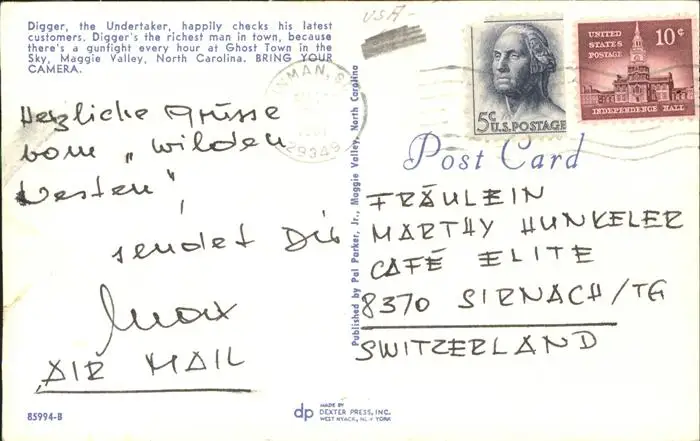 Digger, the Undertaker, happily checks his latest
customers. Digger's the richest man in town, because
there's a gunfight every hour at Ghost Town in the
Sky, Maggie Valley, North Carolina. BRING YOUR
CAMERA.
Herzliche Grüsse
vom „wilden
Westen",
sendet Dir
Max
AIR MAIL
85994-B
Published by Pal Parker, Jr., Maggie Valley, North Carolina
dp
MADE BY
DEXTER PRESS, INC.
WEST NYACK, NEW YORK
USA
NMAN, S
29349
5c U.S. POSTAGE
UNITED
STATES
POSTAGE
10¢
INDEPENDENCE HALL
Post Card
FRÄULEIN
MARTHY HUNKELER
CAFÉ ELITE
8370 SIRNACH/TG
SWITZERLAND